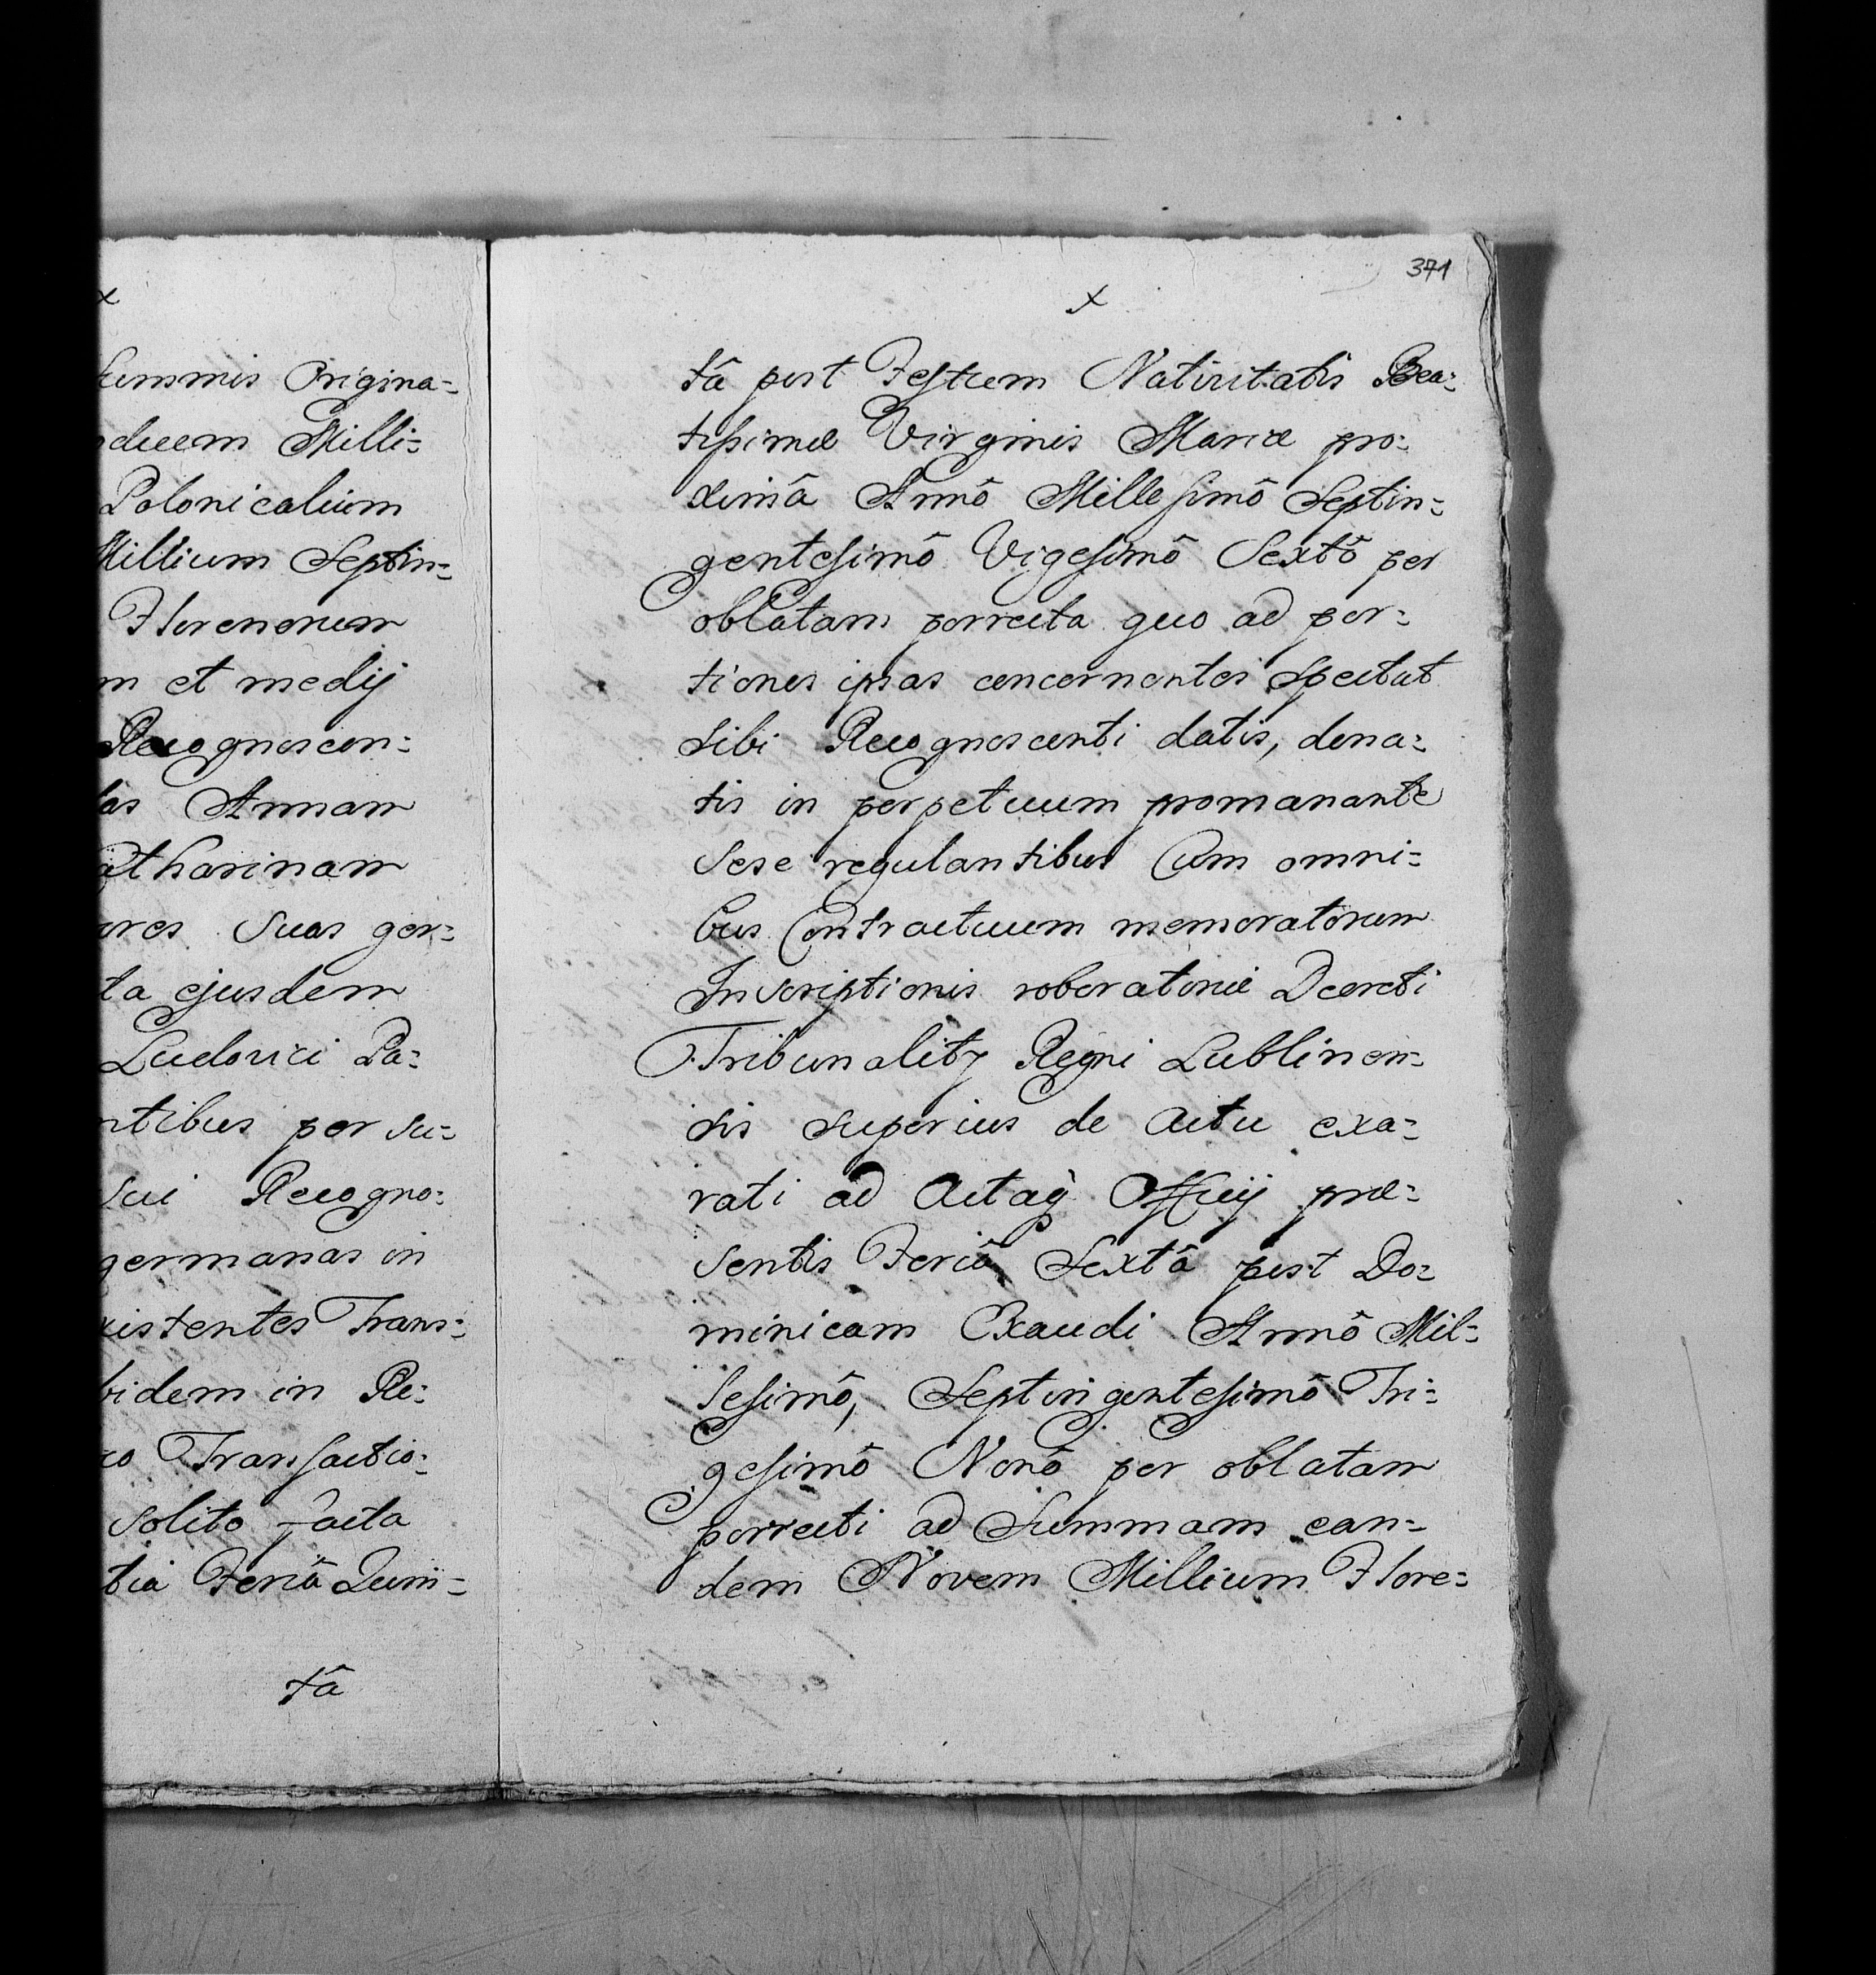 x
summis Origina=
decem Milli=
Polonicalium
Millium Septin=
Florenorum
m et medij
Recognoscen=
las Annam
atharinam
ores Suas ger=
ta ejusdem
Ludovici Pa=
ntibus per su=
sui Recogno=
germanas in
xistentes Trans=
bidem in Re=
co Transactio=
solito facta
tia Feriâ Quin=
tâ
371
x
tâ post Festum Nativitatis Bea=
tissimæ Virginis Mariæ pro=
ximâ Annô Millesimô Septin=
gentesimô Vigesimô Sextô per
oblatam porrecta quo ad por=
tiones ipsas concernentes Spectat
sibi Recognoscenti datis, dona=
tis in perpetuum promanante
Sese regulantibus Cum omni=
bus Contractuum memoratorum
Inscriptionis roboratoriæ Decreti
Tribunalitẏ Regni Lublinen=
sis superius de Actu exa=
rati ad Actaq̀ Officij præ=
sentis Feriâ Sextâ post Do=
minicam Exaudi Annô Mil=
lesimô, Septingentesimô Tri=
gesimô Nonô per oblatam
porrecti ad Summam ean=
dem Novem Millium Flore=